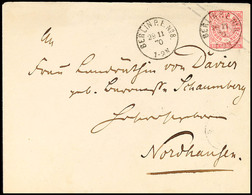 BERLIN P.E. N:8.
29 11
70
7-8 N
An
Frau Landräthin von Davier
geb. Baronesse Schaumberg
Nordhausen.